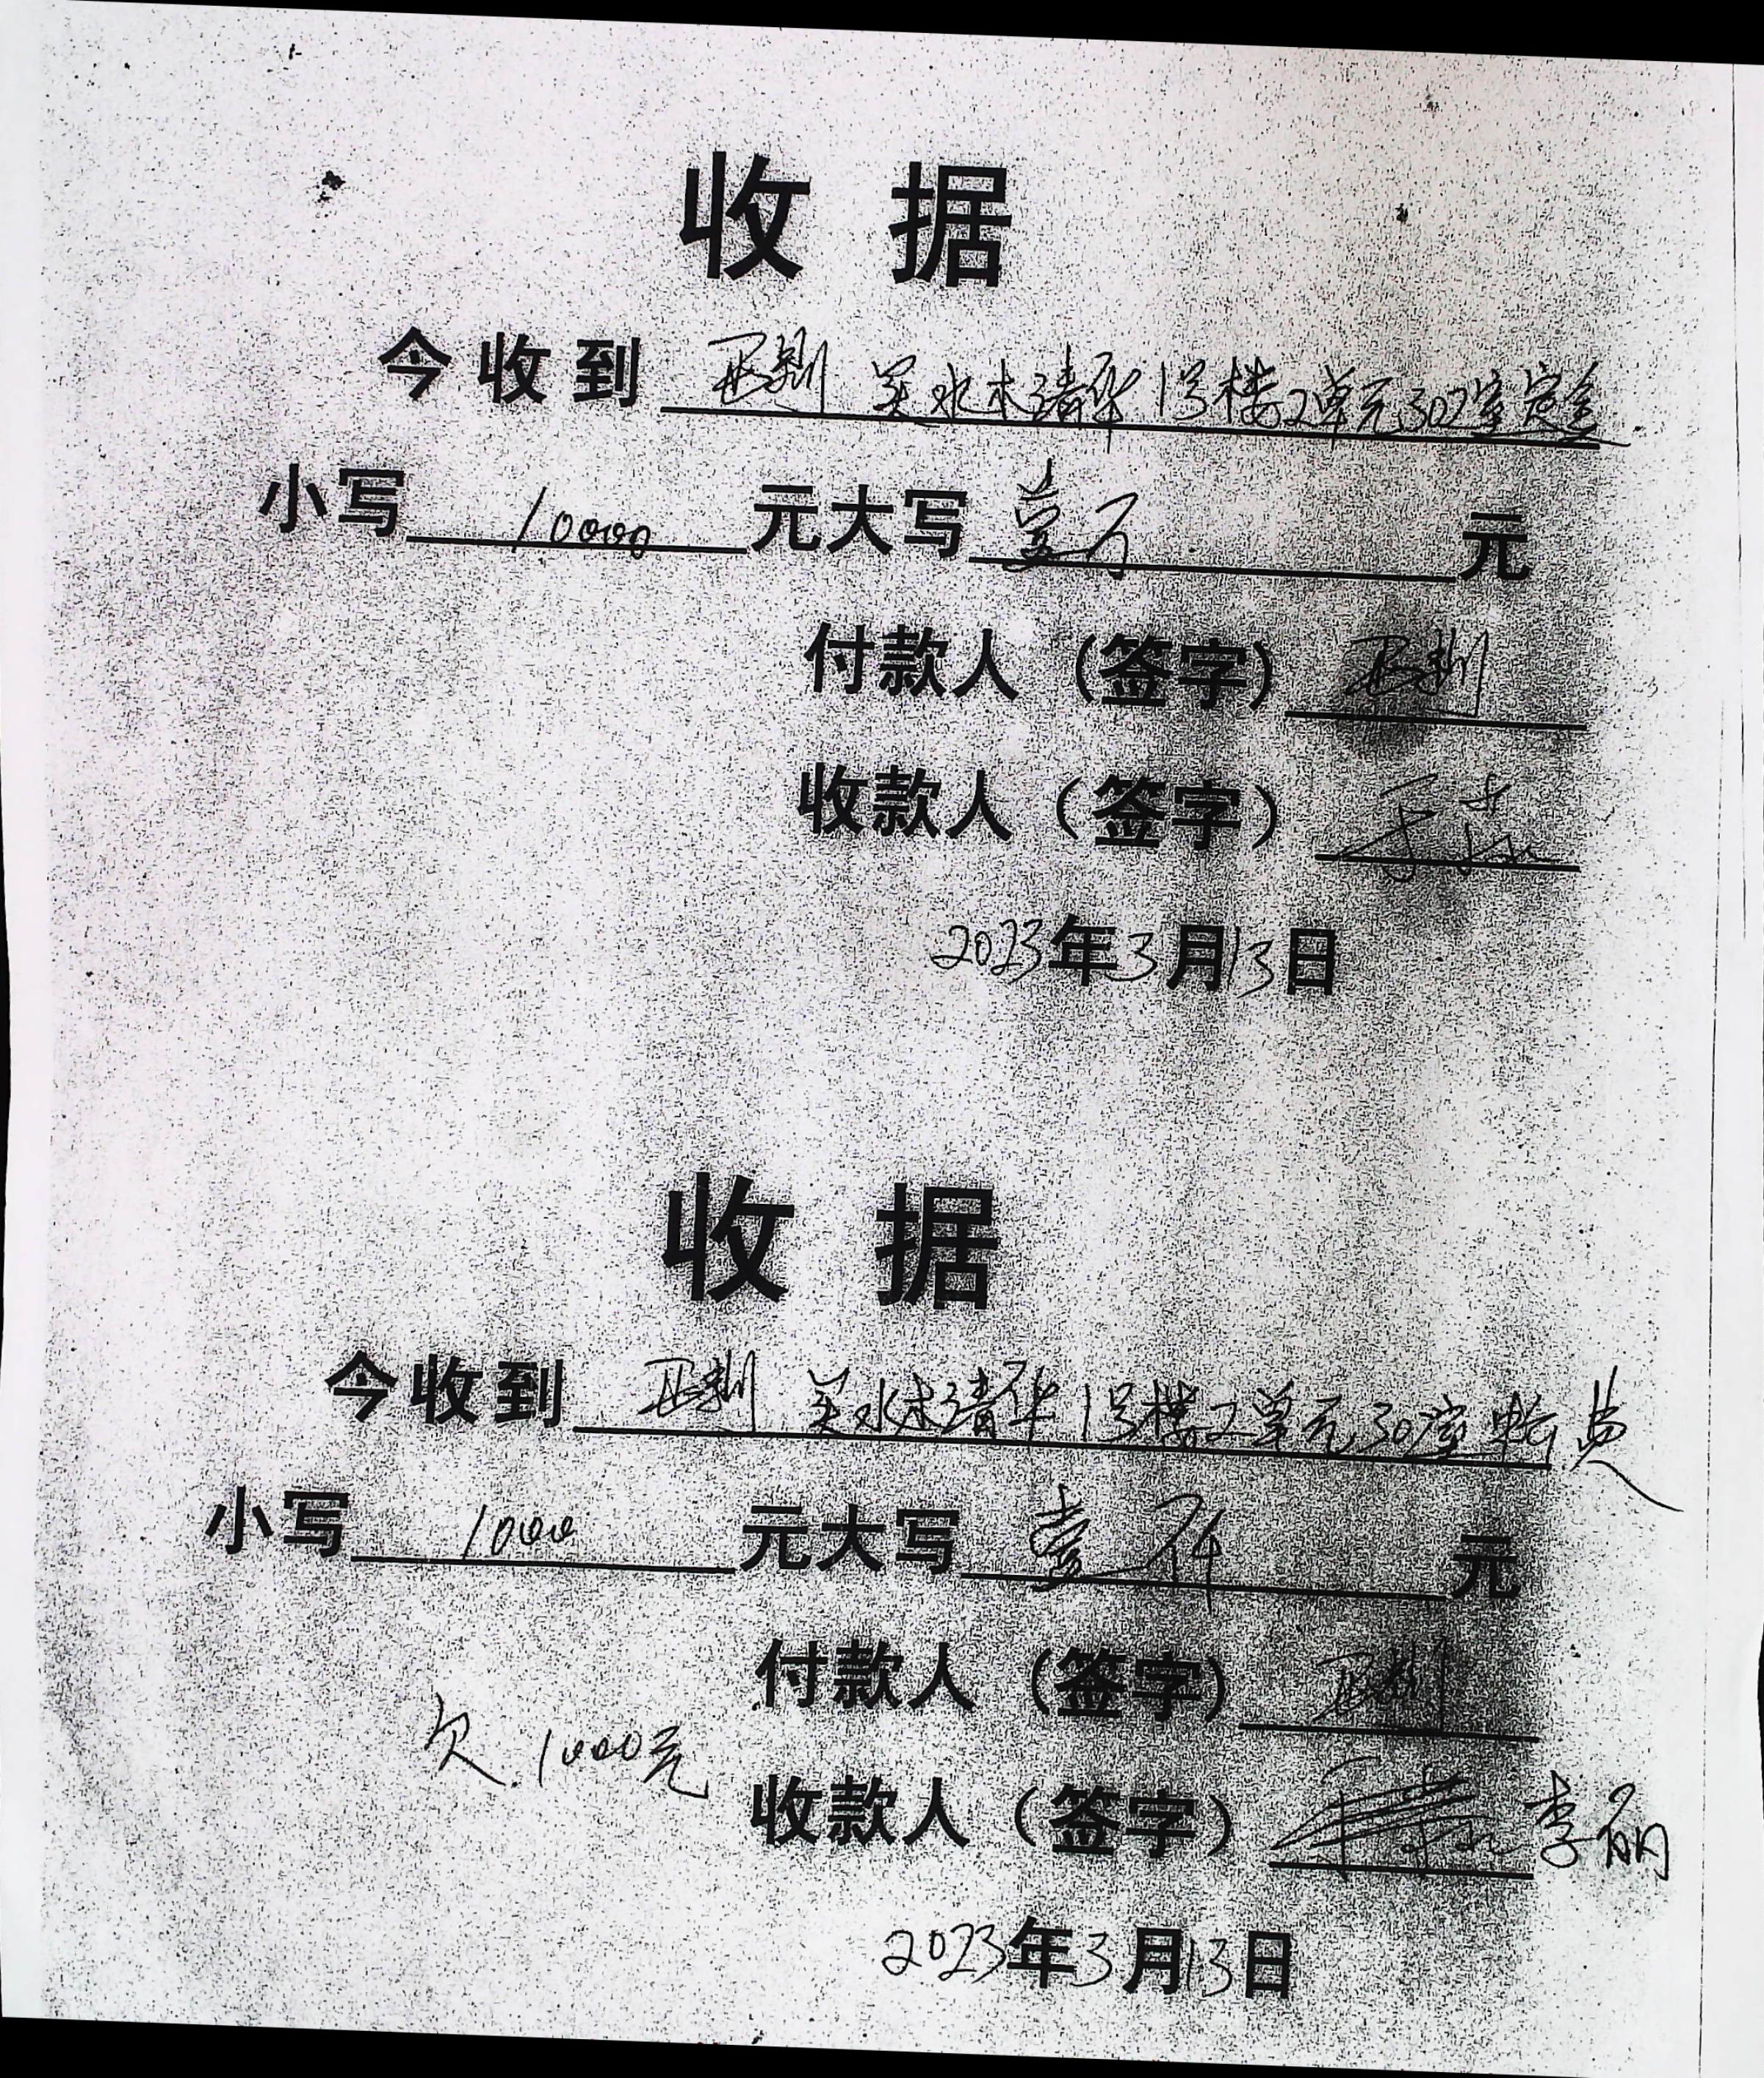 收 据
今收到 买水木清华1号楼2单元302室定金
小写 10000 元大写 壹万 元
付款人（签字）
收款人（签字）
2023年3月13日
收 据
今收到 买水木清华1号楼2单元302室 费
小写 1000 元大写 壹仟 元
付款人（签字）
欠 1000元
收款人（签字） 李丽
2023年3月13日